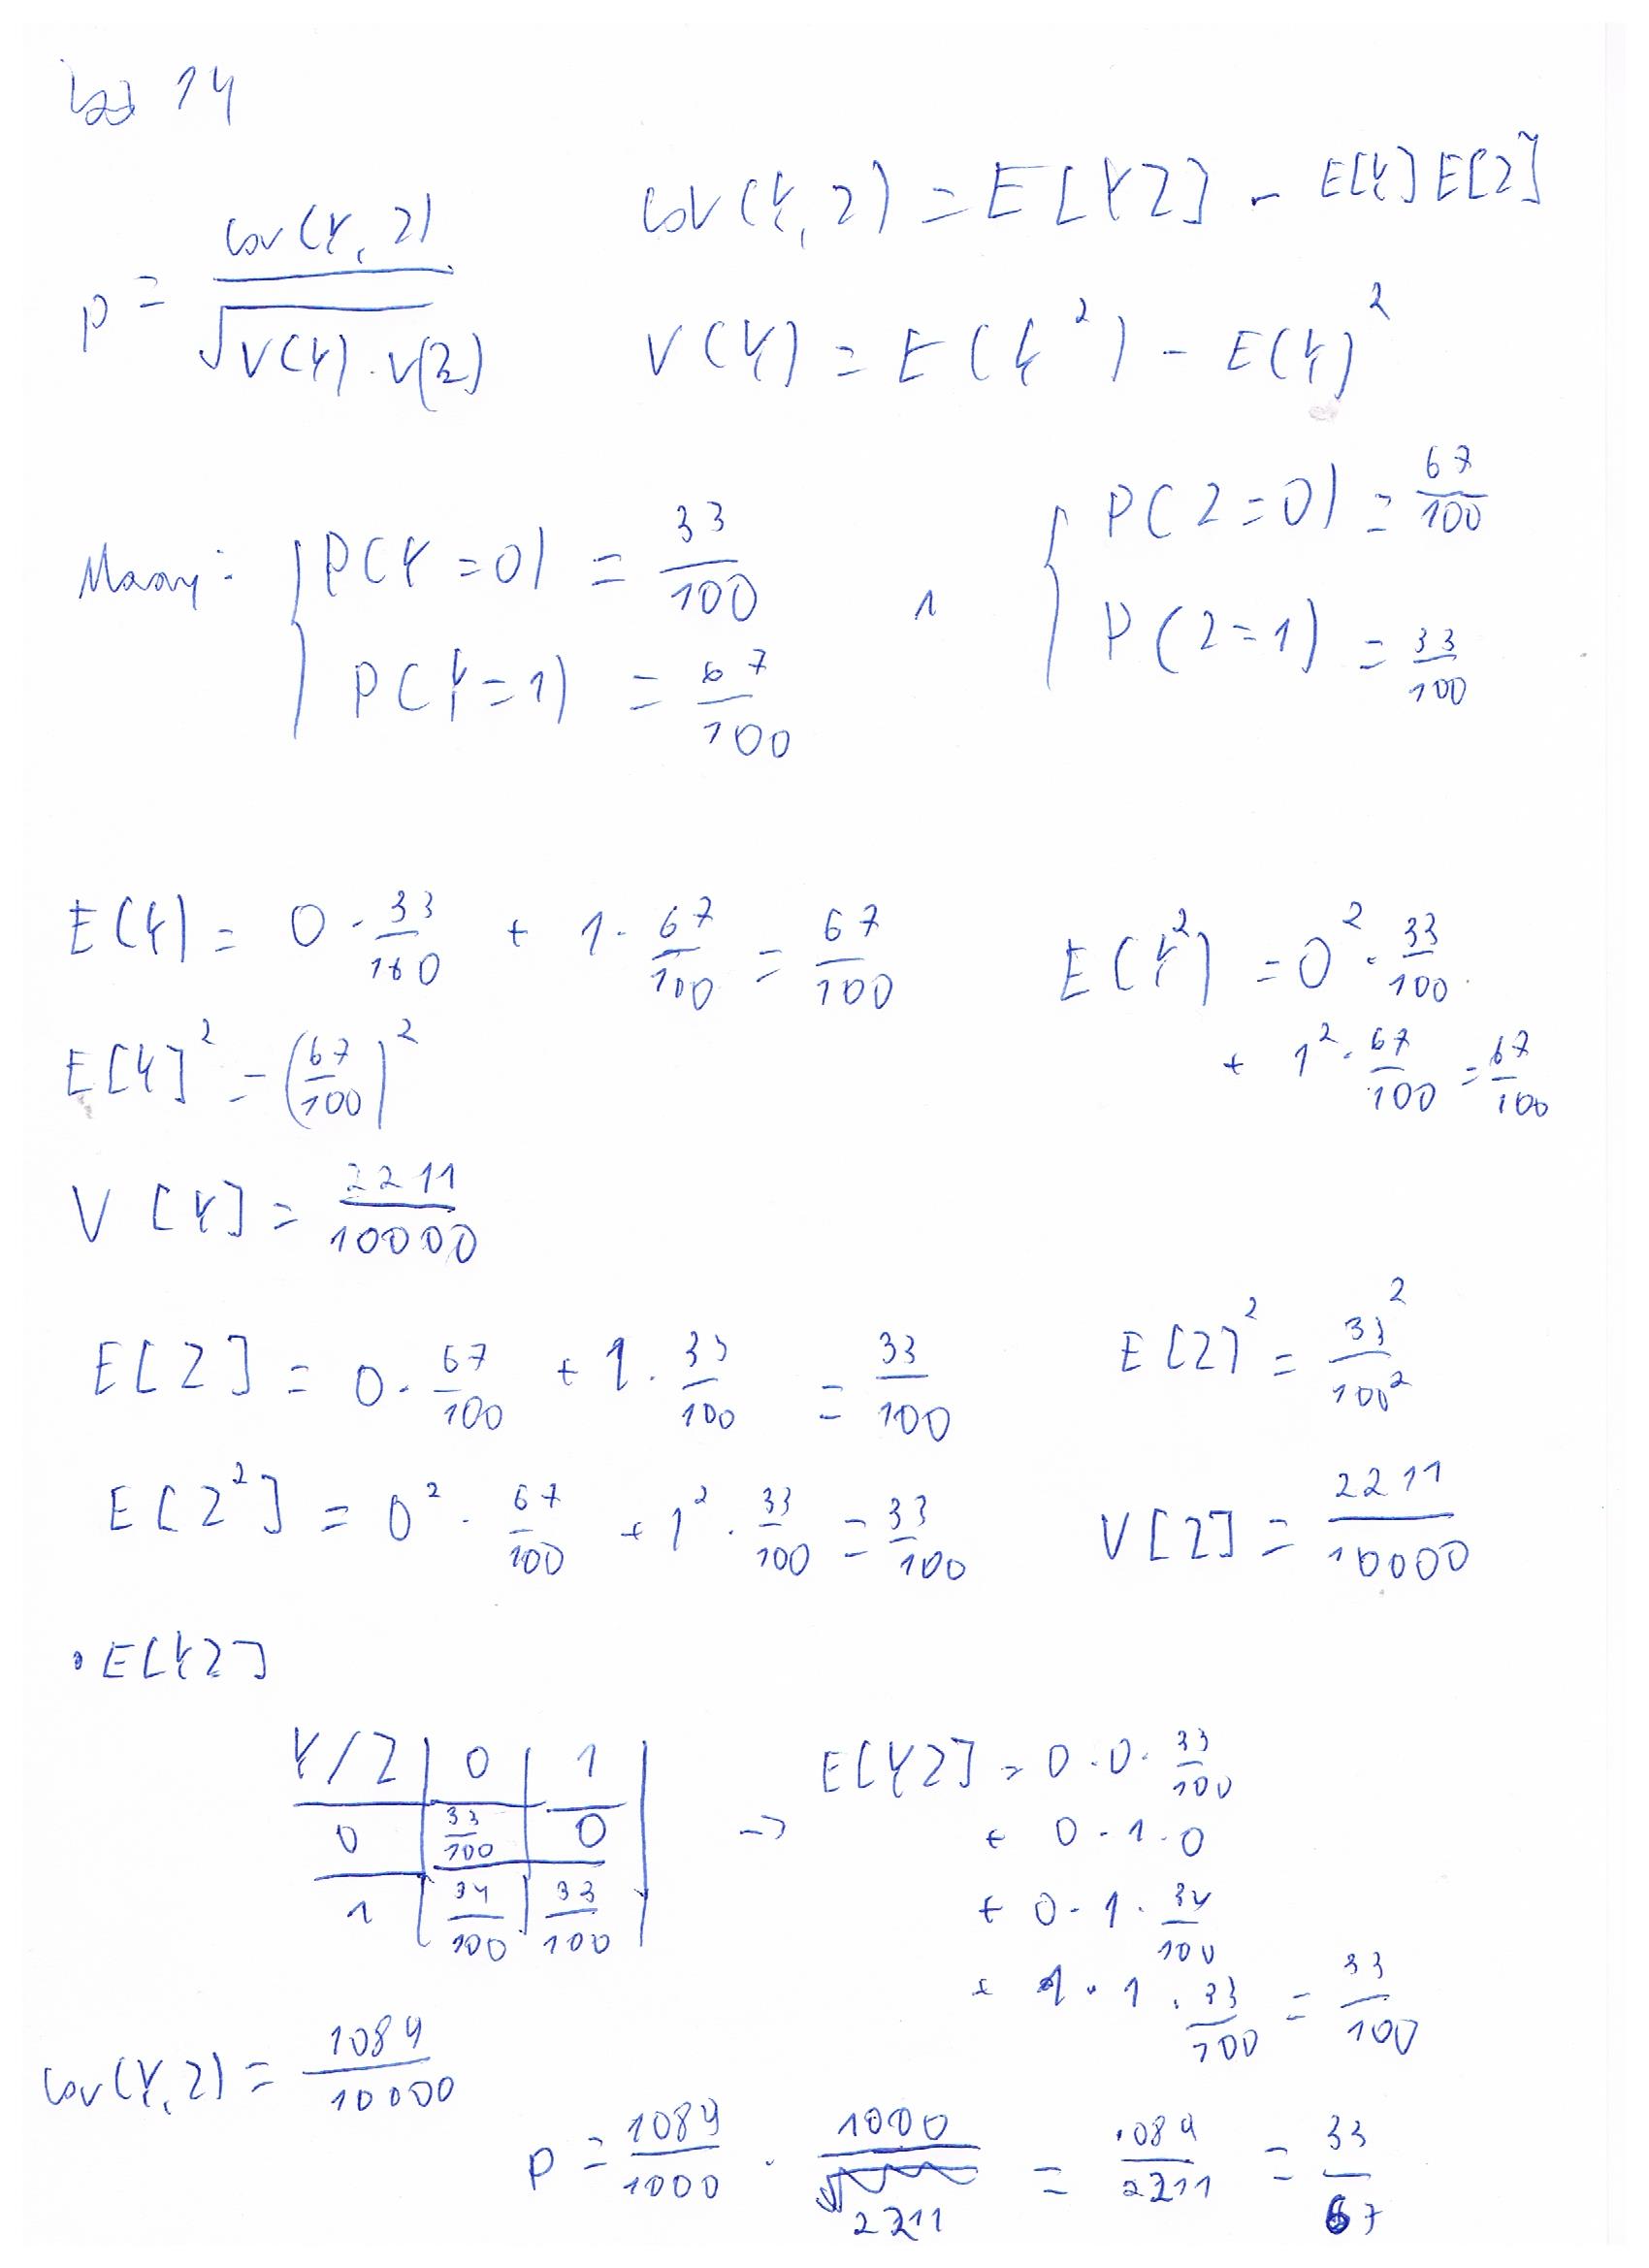 Zad 14
ρ = cov(Y, Z) / √V(Y) · V(Z)
cov(Y, Z) = E[YZ] - E[Y]E[Z]
V(Y) = E(Y²) - E(Y)²
Mamy: { P(Y=0) = 33/100
P(Y=1) = 67/100
∧ { P(Z=0) = 67/100
P(Z=1) = 33/100
E(Y) = 0 · 33/100 + 1 · 67/100 = 67/100
E(Y²) = 0² · 33/100
+ 1² · 67/100 = 67/100
E[Y]² = (67/100)²
V[Y] = 2211/10000
E[Z] = 0 · 67/100 + 1 · 33/100 = 33/100
E[Z]² = 33²/100²
E[Z²] = 0² · 67/100 + 1² · 33/100 = 33/100
V[Z] = 2211/10000
• E[YZ]
Y/Z | 0 | 1 |
0 | 33/100 | 0
1 | 34/100 | 33/100 |
→ E[YZ] = 0 · 0 · 33/100
+ 0 · 1 · 0
+ 0 · 1 · 34/100
+ 1 · 1 · 33/100 = 33/100
cov(Y, Z) = 1089/10000
ρ = 1089/1000 · 1000/2211 = 1089/2211 = 33/67